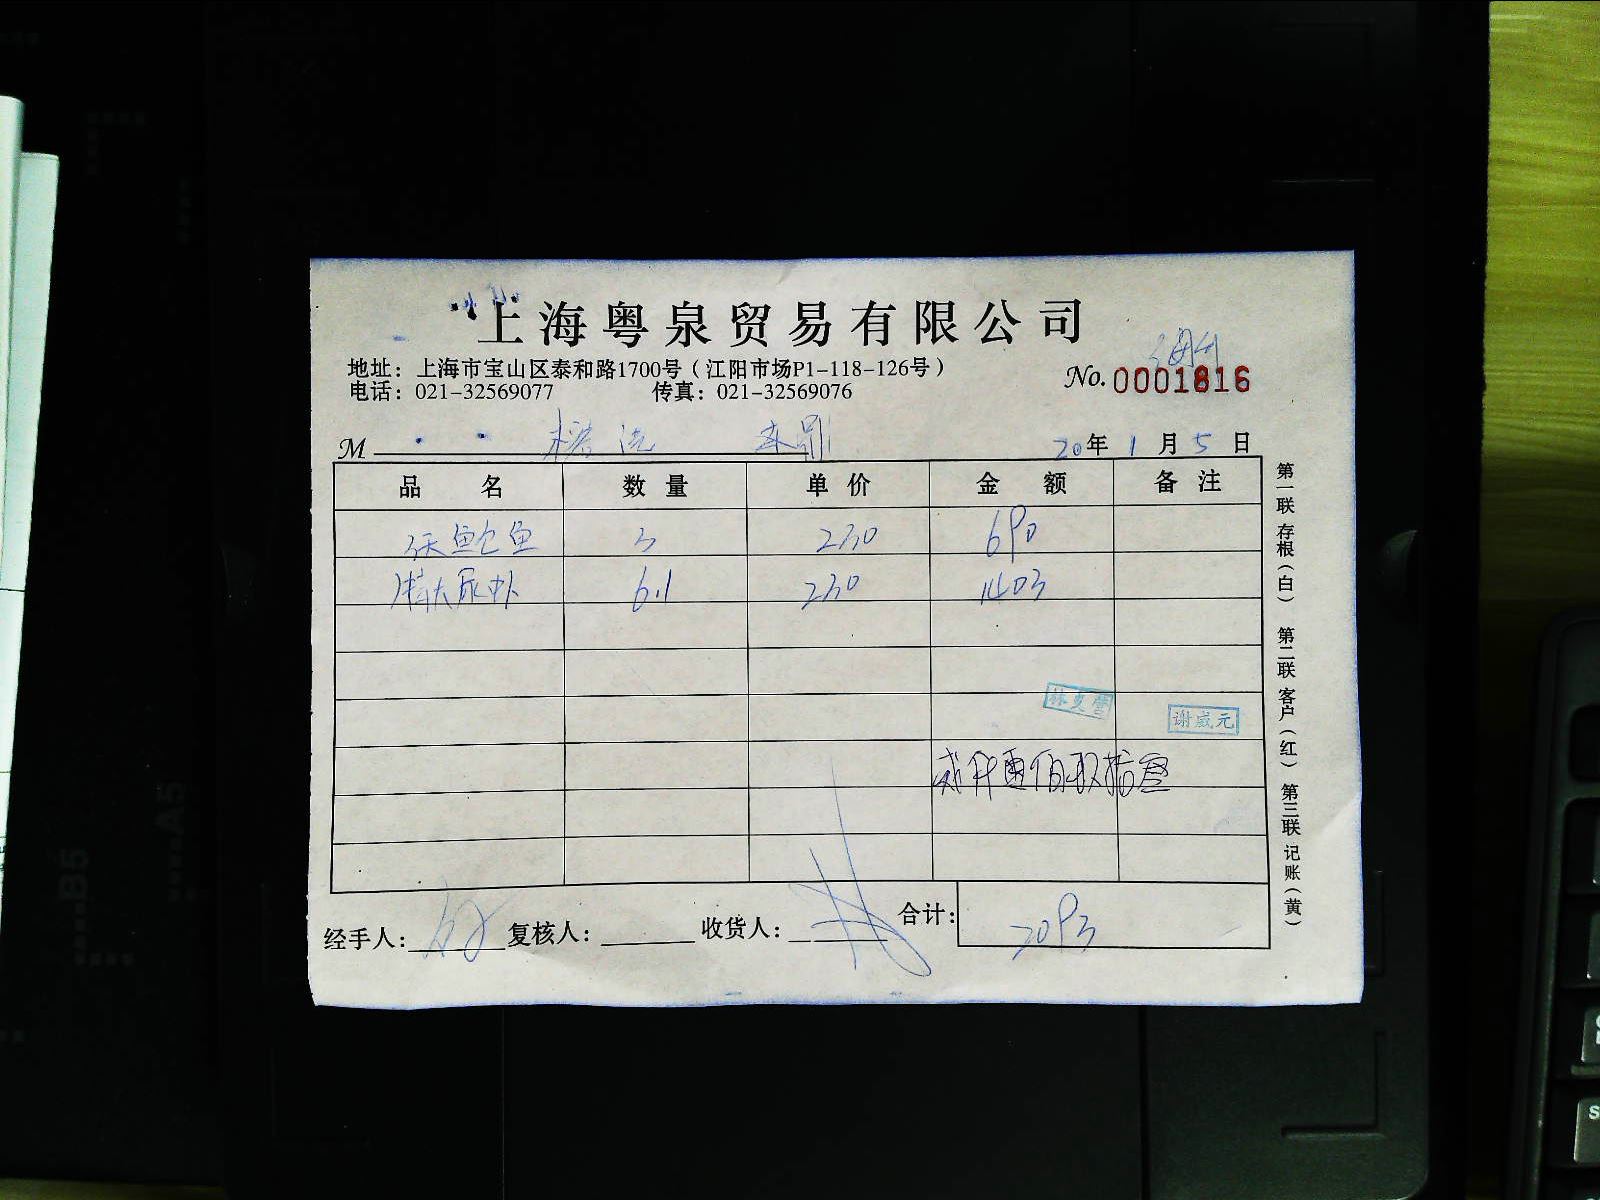 上海粤泉贸易有限公司
地址：上海市宝山区泰和路1700号（江阳市场P1-118-126号）
电话：021-32569077 传真：021-32569076
No. 0001816
M
20年1月5日
品名 数量 单价 金额 备注
鲍鱼 3 230 690
特大尿虾 6.1 230 1403
林贞雪
谢威元
经手人： 复核人： 收货人： 合计： 2093
第一联 存根（白） 第二联 客户（红） 第三联 记账（黄）
B5
A5